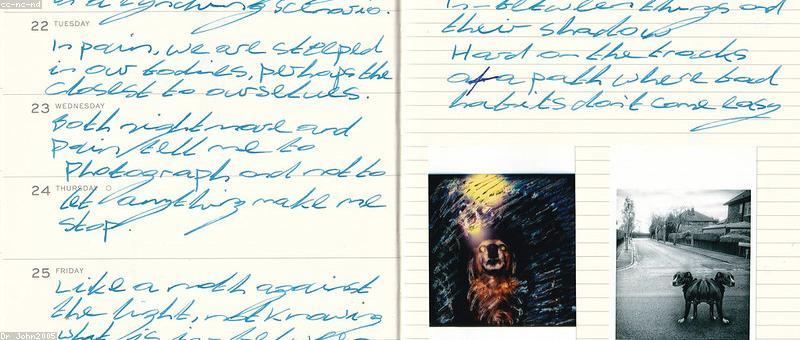 cc-nc-nd
scenario.
22 TUESDAY
In pain, we are steeped
in our bodies, perhaps the
closest to ourselves.
23 WEDNESDAY
Both nightmare and
pain tell me to
photograph and not to
24 THURSDAY
let anything make me
stop.
25 FRIDAY
Like a moth against
the light, not knowing
what is in-between
Dr John2005
in-between things and
their shadow
Hard on the tracks
of a path where bad
habits don't come easy